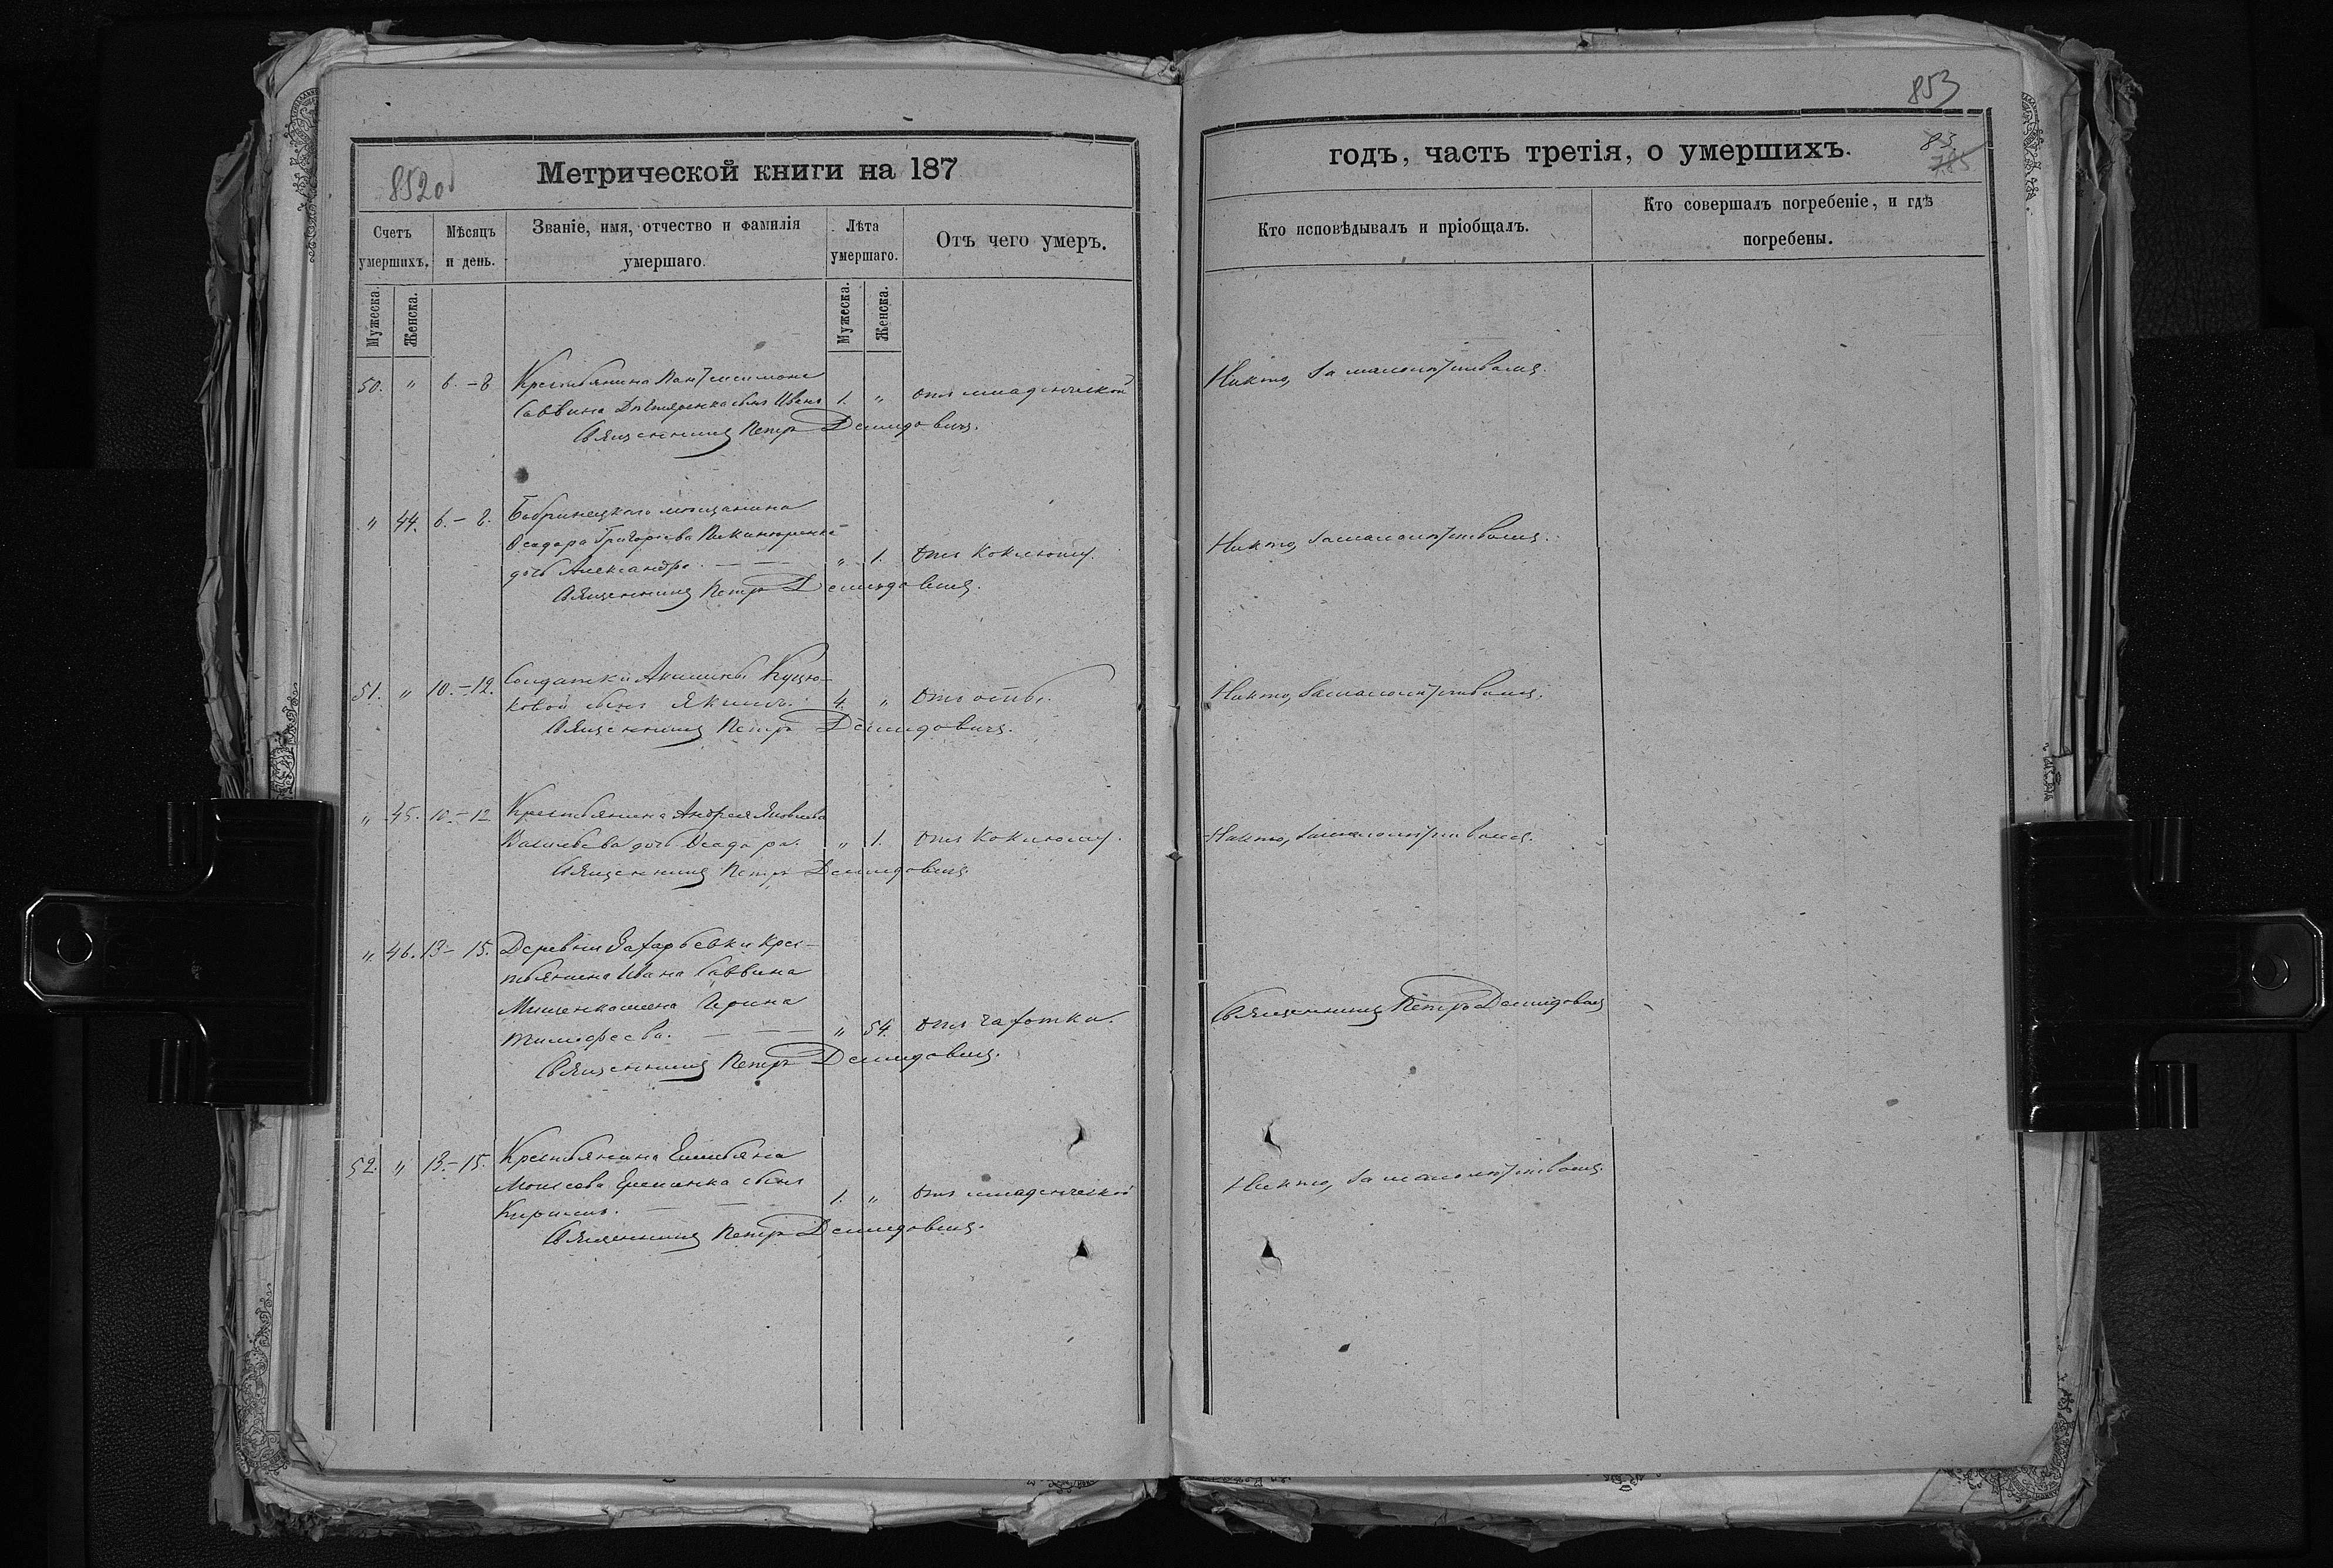 853
852об
Метрической книги на 187
годъ, часть третія, о умершихъ.
83.
785
Счетъ умершихъ.
Мѣсяцъ и день.
Званіе, имя, отчество и фамилія умершаго.
Лѣта умершаго.
Отъ чего умеръ.
Кто исповѣдывалъ и пріобщалъ.
Кто совершалъ погребеніе, и гдѣ погребены.
Мужеска.
Женска.
Мужеска.
Женска.
50. " 6.-8 Крестьянина Пантелеимона
Саввина сынъ Иванъ 1. " отъ младенческой
Священникъ Петръ Демидовичъ.
Никто, за малолѣтствомъ.
" 44. 6.-8. Бобринецкаго мѣщанина
Ѳеодора Григорьева
дочь Александра. " 1. Отъ коклюшу.
Священникъ Петръ Демидовичъ.
Никто, за малолѣтствомъ.
51. " 10.-12. Солдатки Акилины Куцю-
ковой сынъ Якимъ. 4. " Отъ оспы.
Священникъ Петръ Демидовичъ.
Никто, за малолѣтствомъ.
" 45. 10.-12 Крестьянина Андрея Яковлева
Васильева дочь Ѳеодора. " 1. Отъ коклюшу.
Священникъ Петръ Демидовичъ.
Никто, за малолѣтствомъ.
" 46. 13-15. Деревни Захарьевки крес-
тьянина Ивана Саввина
Мищенка жена Ирина
Тимофеева. " 54. Отъ чахотки.
Священникъ Петръ Демидовичъ.
Священникъ Петръ Демидовичъ
52. " 13.-15. Крестьянина Емельяна
Моисеева Еременка сынъ
Кириллъ. 1. " Отъ младенческой
Священникъ Петръ Демидовичъ.
Никто, за малолѣтствомъ.